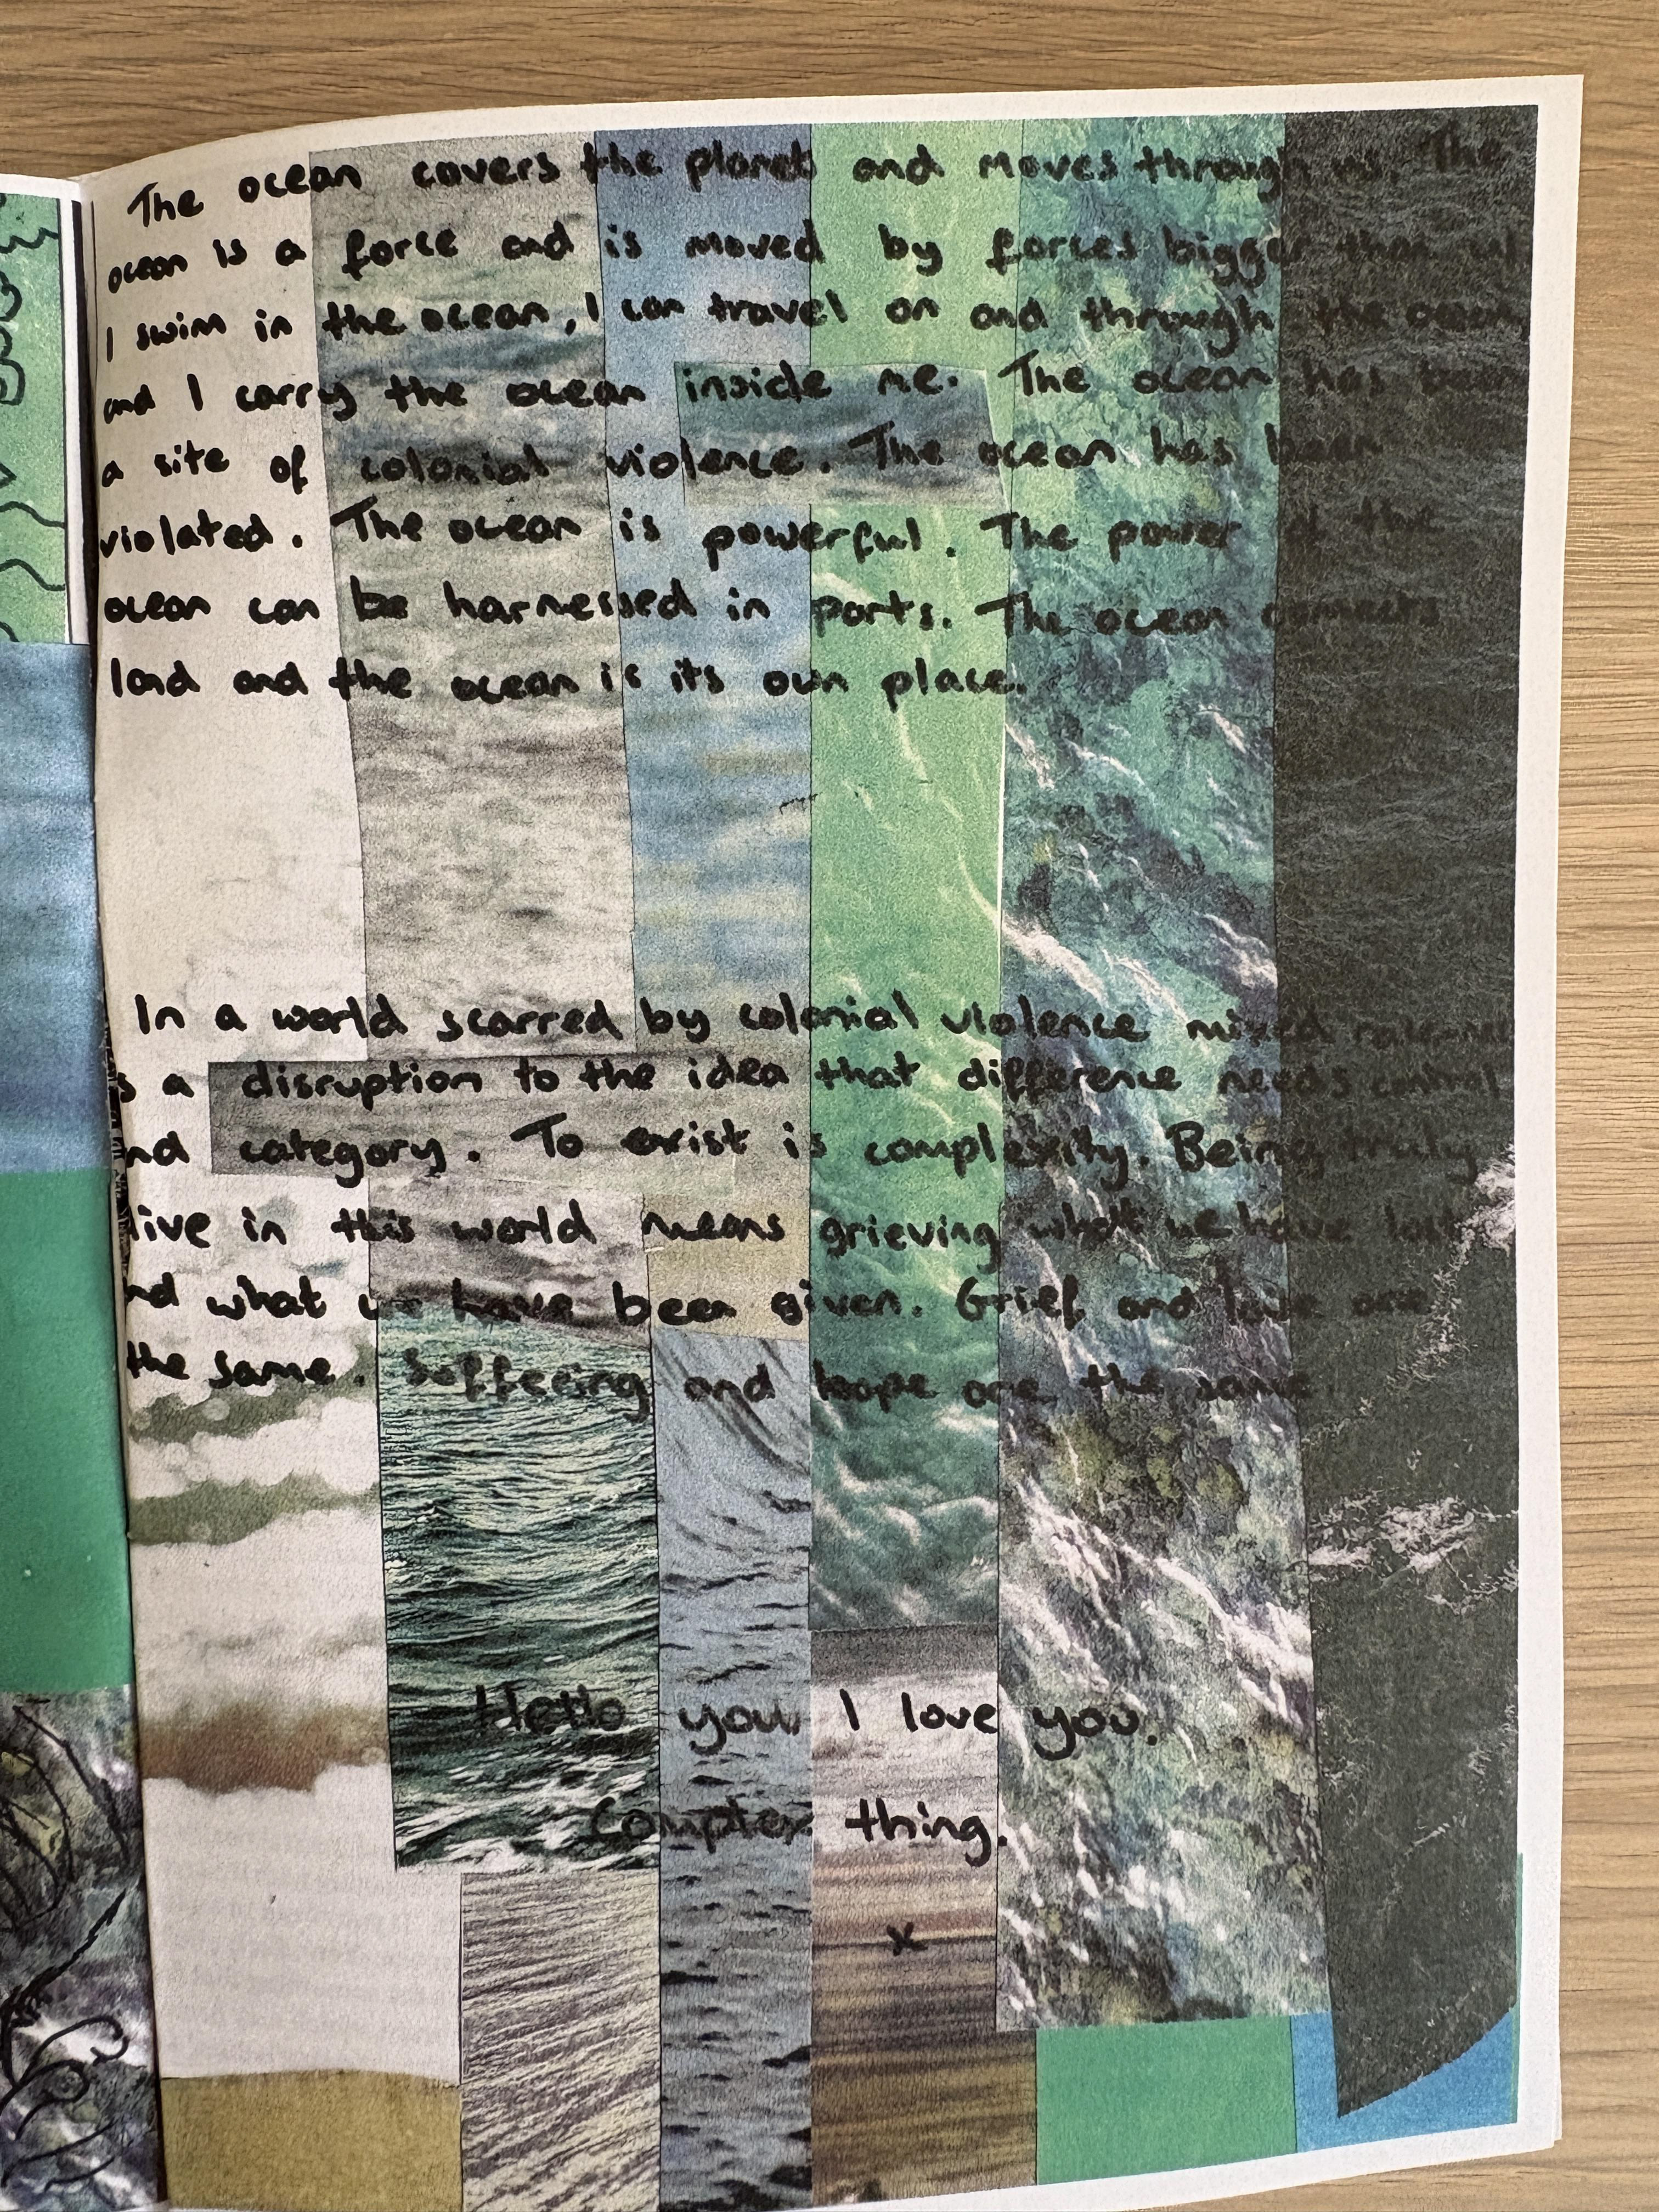 The ocean covers the planet and moves through us. The
ocean is a force and is moved by forces bigger than us.
I swim in the ocean, I can travel on and through the ocean
and I carry the ocean inside me. The ocean has been
a site of colonial violence. The ocean has been
violated. The ocean is powerful. The power of the
ocean can be harnessed in parts. The ocean connects
land and the ocean is its own place.
In a world scarred by colonial violence mixed
is a disruption to the idea that difference needs control
and category. To exist is complexity. Being truly
alive in this world means grieving what we have lost
and what we have been given. Grief and love are
the same. Suffering and hope are the same
Hello you. I love you.
Complex thing.
x